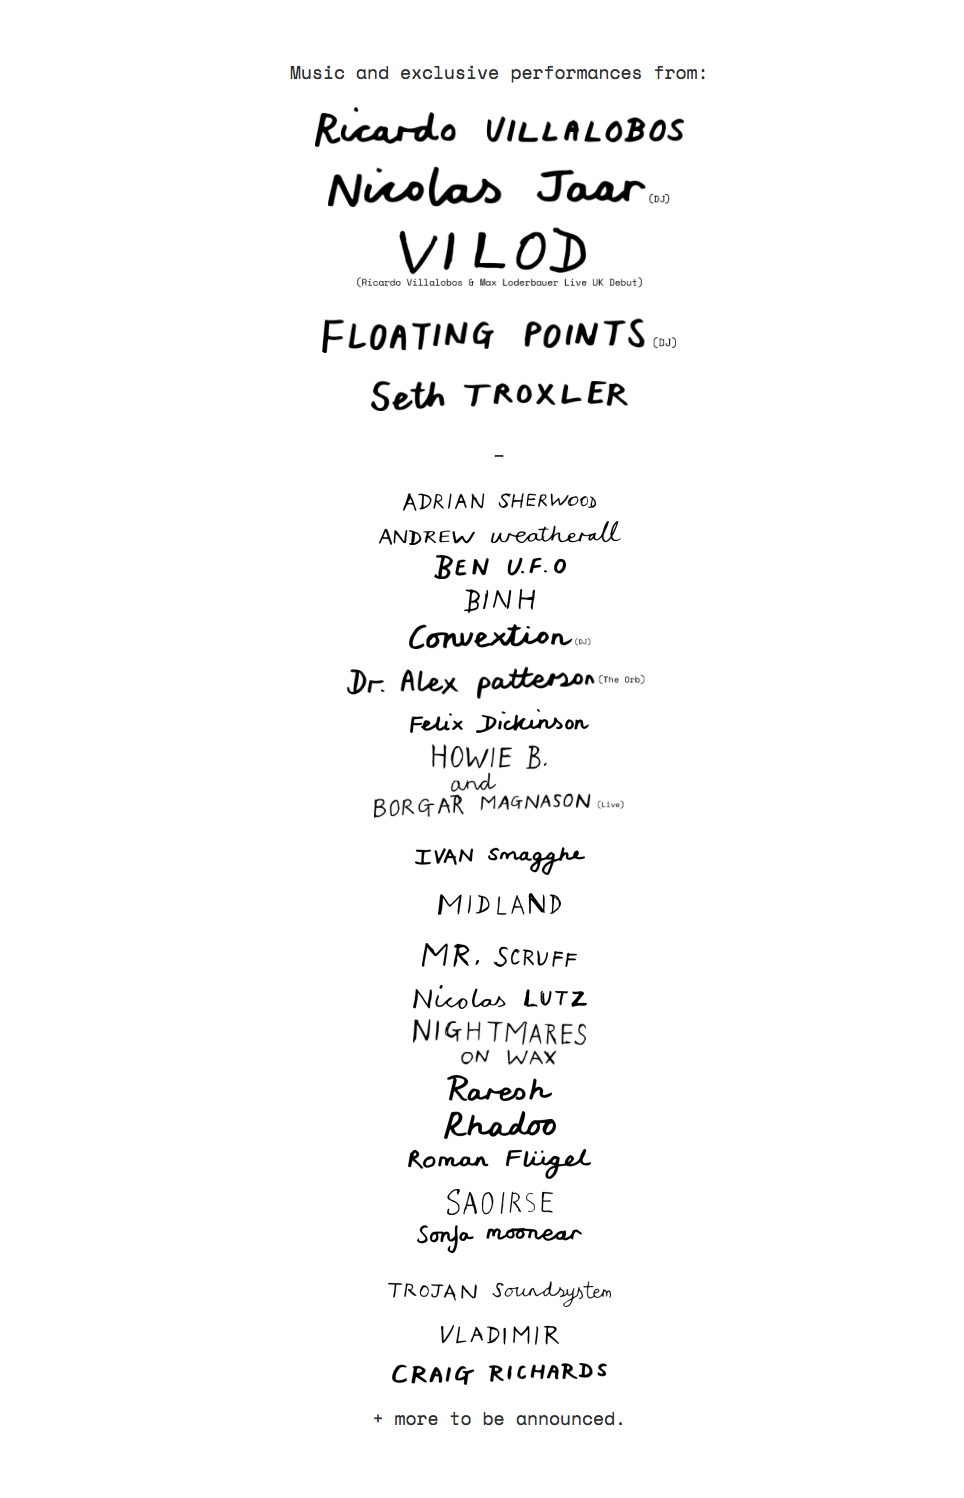 Music and exclusive performances from:
Ricardo VILLALOBOS
Nicolas Jaar (DJ)
VILOD
(Ricardo Villalobos & Max Loderbauer Live UK Debut)
FLOATING POINTS (DJ)
Seth TROXLER
–
ADRIAN SHERWOOD
ANDREW weatherall
BEN U.F.O
BINH
Convextion (DJ)
Dr. Alex patterson (The Orb)
Felix Dickinson
HOWIE B.
and
BORGAR MAGNASON (Live)
IVAN Smagghe
MIDLAND
MR. SCRUFF
Nicolas LUTZ
NIGHTMARES
ON WAX
Raresh
Rhadoo
Roman Flügel
SAOIRSE
Sonja moonear
TROJAN Soundsystem
VLADIMIR
CRAIG RICHARDS
+ more to be announced.